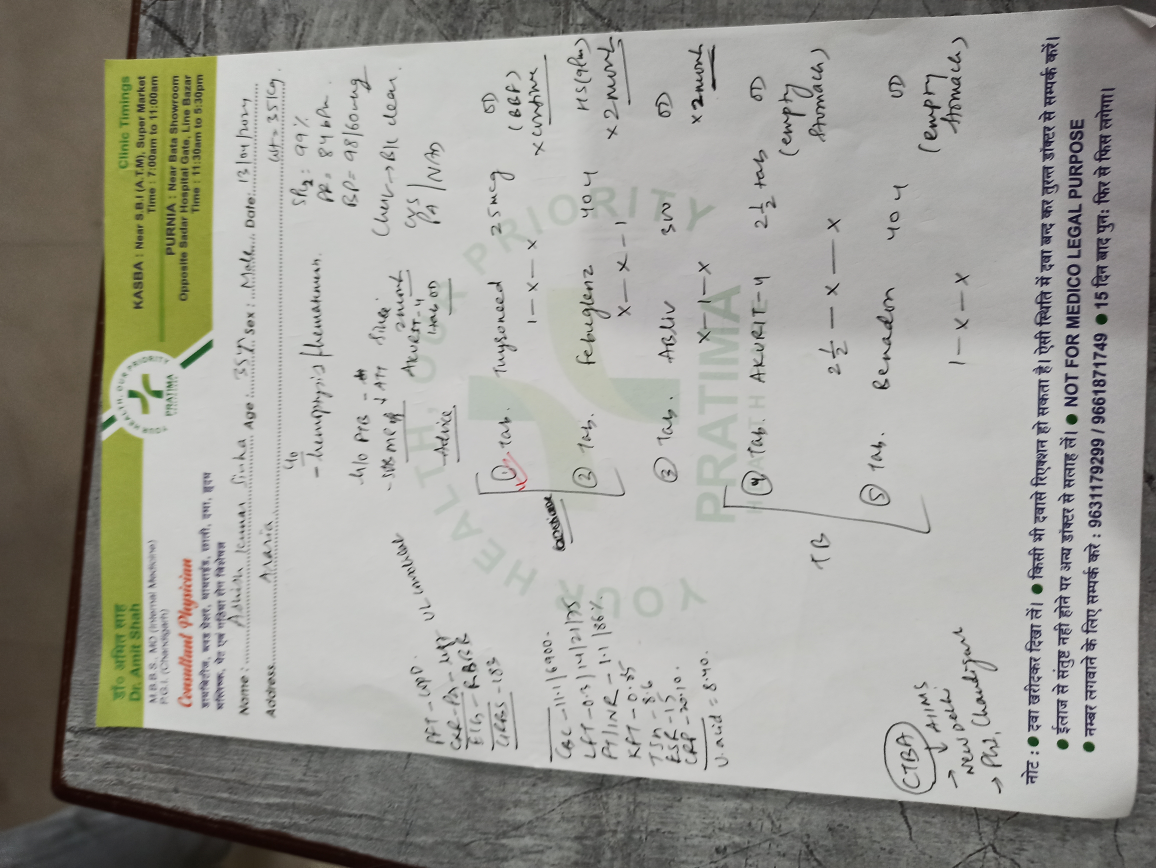 डॉ० अमित साह
Dr. Amit Shah
M.B.B.S., MD (Internal Medicine)
P.G.I. (Chandigarh)
Consultant Physician
YOUR HEALTH, OUR PRIORITY
PRATIMA
Clinic Timings
KASBA : Near S.B.I (A.T.M), Super Market
Time : 7:00am to 11:00am
PURNIA : Near Bata Showroom
Opposite Sadar Hospital Gate, Line Bazar
Time : 11:30am to 5:30pm
Name : Ashish Kumar Sinha Age : 35 Y Sex : Male Date : 13/04/2024
Address Araria Wt = 35 Kg
c/o
- hemoptysis / hematemesis
H/O PTB
AKURIT-4
Advice
SPO2 : 99%
PR = 84 bpm
BP = 98/60 mmHg
Chest → B/L clear
CVS
PA / NAD
ECG - RBBB
CBC - 11.1 / 6900
LFT - 0.3 / 14 / 21 / 75
PT/INR - 1.1 / 86%
KFT - 0.85
TSH - 8.6
ESR - 15
CRP - 20.10
U. acid = 8.40
① Tab. Thyroneed 25 mcg OD
1 – x – x (BBF)
x continue
② Tab. Febuglenz 40 HS (9 PM)
x – x – 1 x 2 month
③ Tab. ABLIV 300 OD
x – 1 – x x 2 month
TB
④ Tab. AKURIT-4 2½ tab OD
2½ – x – x (empty stomach)
⑤ Tab. Benadon 40 OD
1 – x – x (empty stomach)
CTBA
↓ AIIMS
→ New Delhi
→ PGI, Chandigarh
YOUR HEALTH, OUR PRIORITY
PRATIMA
नोट : ● दवा खरीदकर दिखा लें। ● किसी भी दवासे रिएक्शन हो सकता है। ऐसी स्थिति में दवा बन्द कर तुरन्त डॉक्टर से सम्पर्क करें।
● ईलाज से संतुष्ट नही होने पर अन्य डॉक्टर से सलाह लें। ● NOT FOR MEDICO LEGAL PURPOSE
● नम्बर लगवाने के लिए सम्पर्क करे : 9631179299 / 9661871749 ● 15 दिन बाद पुनः फिर से फिस लगेगा।